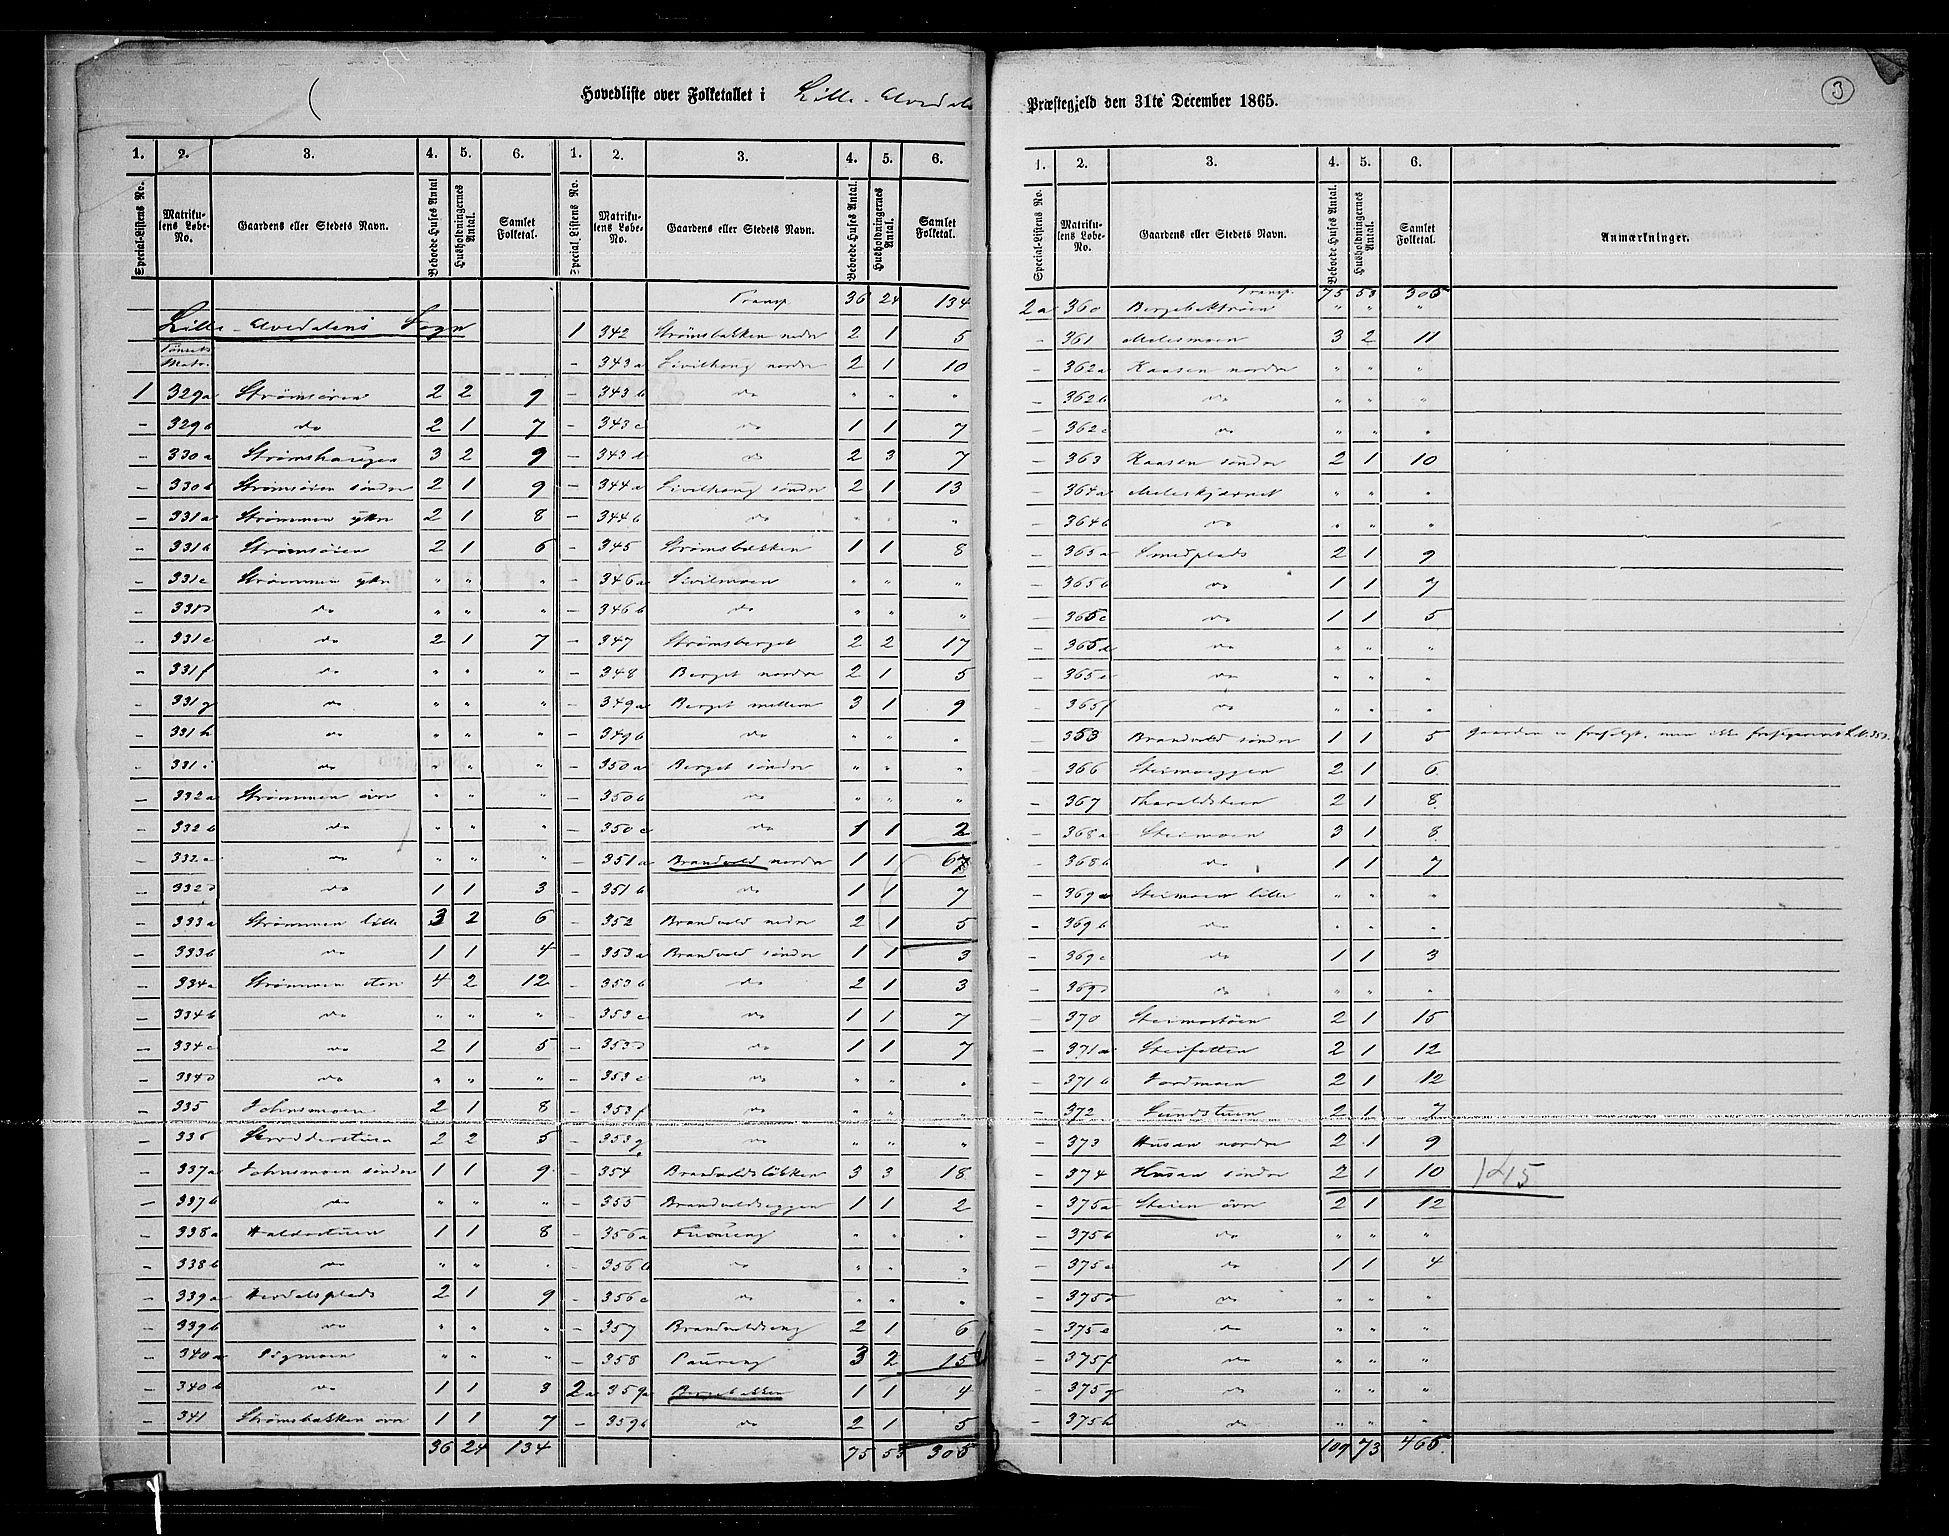 Hovedliste over Folketallet i Lille-Elvedal
Præstegjeld den 31te December 1865.
3
1. 2. 3. 4. 5. 6. 1. 2. 3. 4. 5. 6.
Special-Listens No. Matrikulens Løbe-No. Gaardens eller Stedets Navn. Beboede Huses Antal Husholdningernes Antal. Samlet Folketal. Special Listens No. Matrikulens Løbe-No. Gaardens eller Stedets Navn. Beboede Huses Antal. Husholdningernes Antal. Samlet Folketal.
Transp. 36 24 134
Lille-Elvedalens Sogn 1 342 Strømsbakken nedre 2 1 5
Tønsets Matr. - 343a Sivilhaug nordre 2 1 10
1 329a Strømsøien 2 2 9 - 343b do " " "
- 329b do 2 1 7 - 343c do 1 1 7
- 330a Strømshaugen 3 2 9 - 343d do 2 3 7
- 330b Strømsøien søndre 2 1 9 - 344a Sivilhaug søndre 2 1 13
- 331a Strømmen ytre 2 1 8 - 344b do " " "
- 331b Strømsøien 2 1 6 - 345 Strømsbakken 1 1 8
- 331c Strømmen ytre " " " - 346a Sivilmoen " " "
- 331d do " " " - 346b do " " "
- 331e do 2 1 7 - 347 Strømsberget 2 2 17
- 331f do " " " - 348 Berget nordre 2 1 5
- 331g do " " " - 349a Berget mellem 3 1 9
- 331h do " " " - 349b do " " "
- 331i do " " " - 350a Berget søndre " " "
- 332a Strømmen øvre " " " - 350b do " " "
- 332b do " " " - 350c do 1 1 2
- 332c do " " " - 351a Brandvold nordre 1 1
- 332d do 1 1 3 - 351b do 1 1 7
- 333a Strømmen lille 3 2 6 - 352 Brandvold nedre 2 1 5
- 333b do 1 1 4 - 353a Brandvold søndre 1 1 3
- 334a Strømmen store 4 2 12 - 353b do 2 1 3
- 334b do " " " - 353c do 1 1 7
- 334c do 2 1 5 - 353d do 1 1 7
- 334d do " " " - 353e do " " "
- 335 Johnsmoen 2 1 8 - 353f do " " "
- 336 2 2 5 - 353g do " " "
- 337a Johnsmoen søndre 1 1 9 - 354 Brandvoldsløkken 3 3 18
- 337b do " " " - 355 Brandvoldseggen 1 1 2
- 338a Haldostuen 1 1 8 - 356a " " "
- 338b do " " " - 356b do " " "
- 339a Herdalsplads 2 1 9 - 356c do " " "
- 339b do " " " - 357 Brandvoldseng 2 1 6
- 340a " " " - 358 Paureng 3 2 15
- 340b do 1 1 3 2a 359a Bergebakken 1 1 4
- 341 Strømsbakken øvre 1 1 7 - 359b do 2 1 5
36 24 134 75 53 305
1. 2. 3. 4. 5. 6.
Special-Listens No. Matrikulens Løbe-No. Gaardens eller Stedets Navn. Beboede Huses Antal. Husholdningernes Antal. Samlet Folketal. Anmærkninger.
Transp. 75 53 305
2a 360 " " "
- 361 Melesmoen 3 2 11
- 362a Kaasen nordre " " "
- 362b do " " "
- 362c do " " "
- 363 Kaasen søndre 2 1 10
- 364a Meleskjærnet " " "
- 364b do " " "
- 365a Smedplads 2 1 9
- 365b do 1 1 7
- 365c do 1 1 5
- 365d do " " "
- 365e do " " "
- 365f do " " "
- 353 Brandvold søndre 1 1 5 Gaarden er
- 366 Steimoeggen 2 1 6
- 367 Haraldsteen 2 1 8
- 368a Steimoen 3 1 8
- 368b do 1 1 7
- 369a Steimoen lille " " "
- 369b do " " "
- 369c do 1 1 3
- 369d do " " "
- 370 Steimostøen 2 1 15
- 371a Steifetten 2 1 12
- 371b Jordmoen 2 1 12
- 372 Lundstuen 2 1 7
- 373 Husan nordre 2 1 9
- 374 Husan søndre 2 1 10 145
- 375a Steien øvre 2 1 12
- 375b do " " "
- 375c do 1 1 4
- 375d do " " "
- 375e do " " "
- 375f do " " "
- 375g do " " "
- 375h do " " "
109 73 465